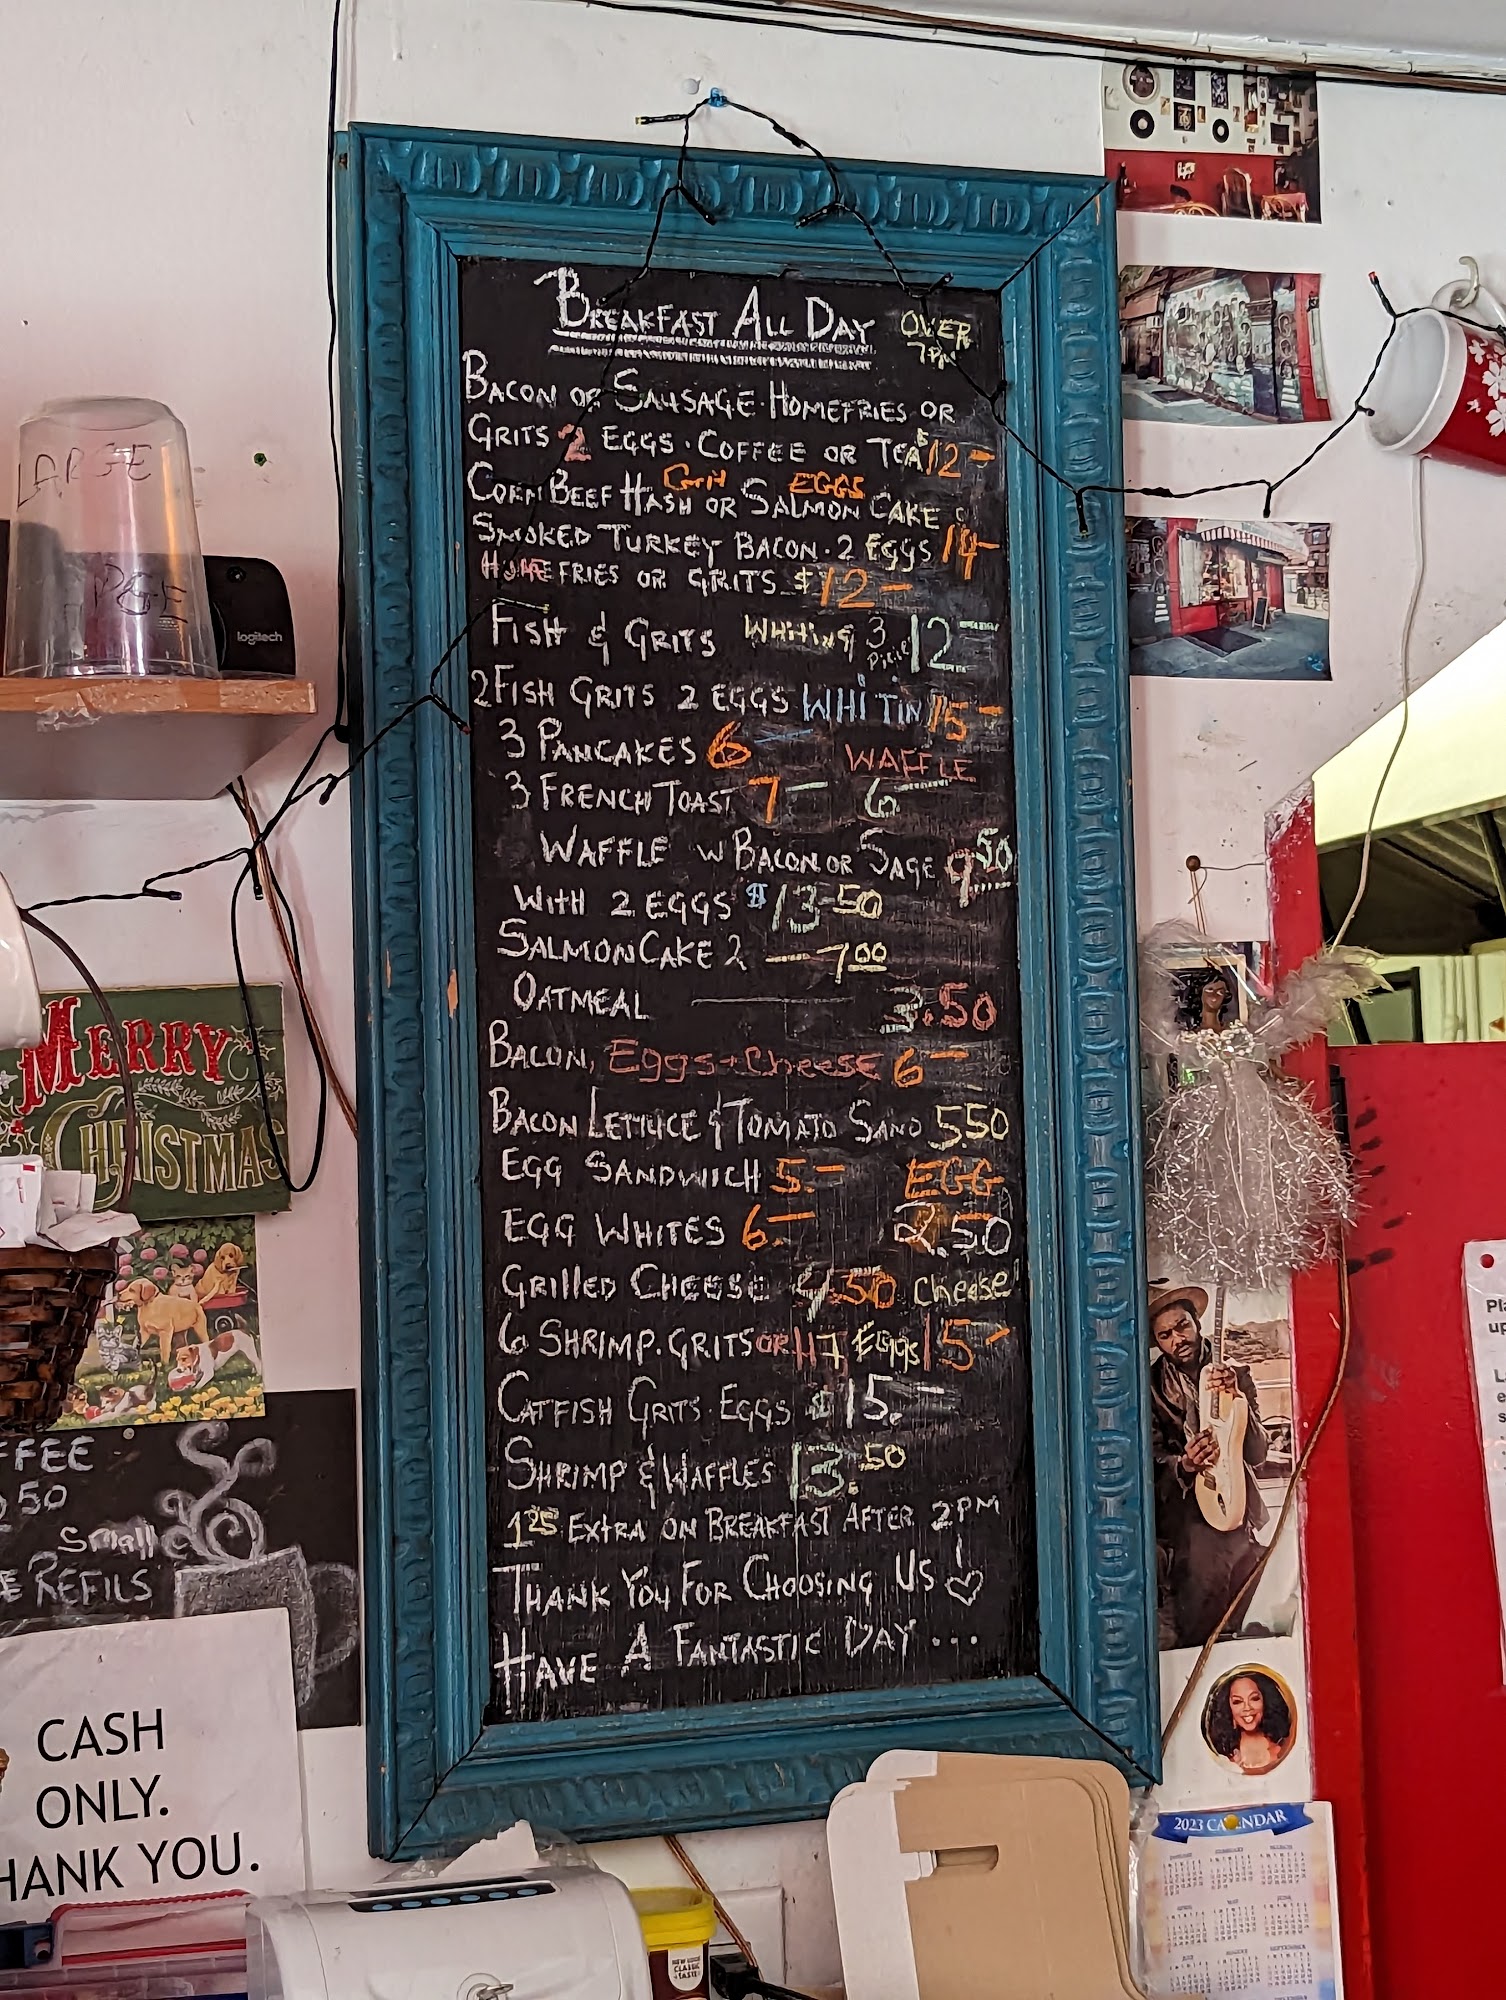 BREAKFAST ALL DAY
OVER
7PM
BACON OR SAUSAGE · HOMEFRIES OR
GRITS 2 EGGS · COFFEE OR TEA 12-
Grit EGGS
CORN BEEF HASH OR SALMON CAKE
SMOKED TURKEY BACON · 2 EGGS 14-
HOMEFRIES OR GRITS $12-
FISH & GRITS WHITING 3 12-
2 FISH GRITS 2 EGGS WHITIN 15-
3 PANCAKES 6- WAFFLE
3 FRENCH TOAST 7- 6-
WAFFLE W BACON OR SAGE 9.50
WITH 2 EGGS $13.50
SALMON CAKE 2 - 7.00
OATMEAL 3.50
BACON, Eggs + Cheese 6-
BACON LETTUCE & TOMATO SAND 5.50
EGG SANDWICH 5.- EGG
EGG WHITES 6.- 2.50
GRILLED CHEESE 4.50 Cheese
6 SHRIMP. GRITS OR EGGS 15-
CATFISH GRITS · EGGS $15.-
SHRIMP & WAFFLES 13.50
1.25 EXTRA ON BREAKFAST AFTER 2PM
THANK YOU FOR CHOOSING US!
HAVE A FANTASTIC DAY ...
LARGE
logitech
MERRY
CHRISTMAS
FFEE
50
Small
REFILS
CASH
ONLY.
HANK YOU.
2023 CALENDAR